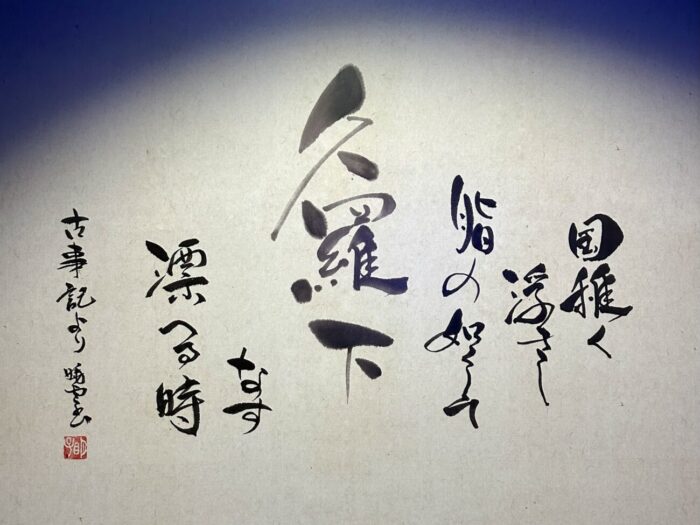 国稚く
浮きし
脂の如くして
久羅下
なす
漂へる時
古事記より